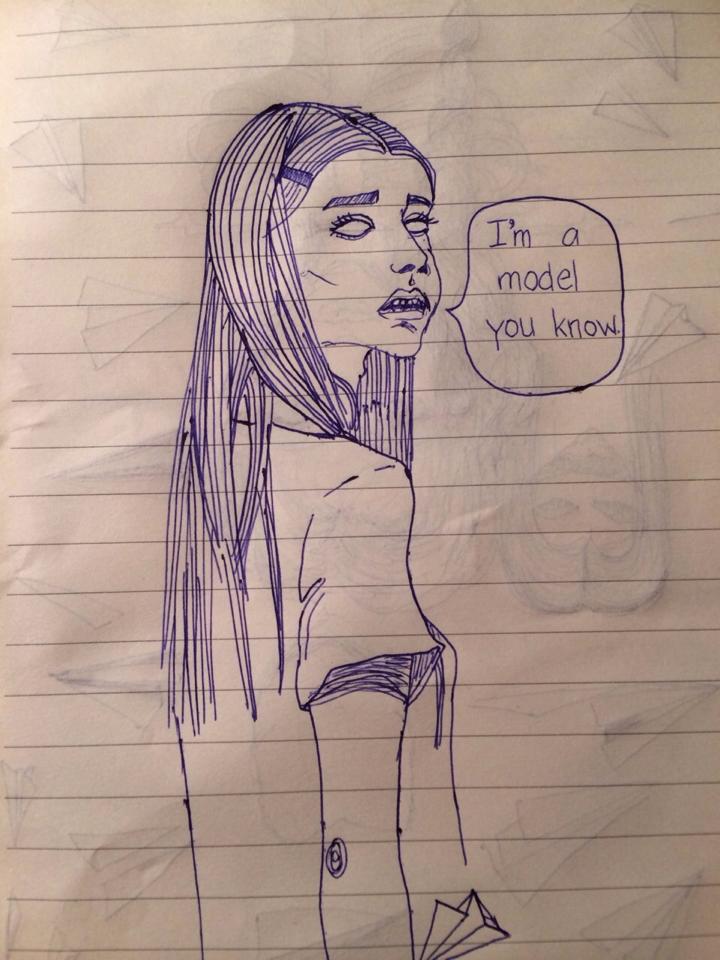 I'm a
model
you know.